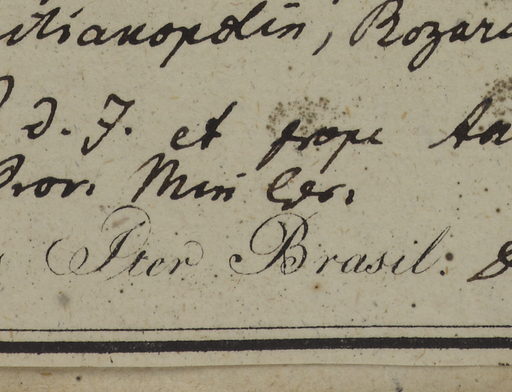 itianopolin, Bozar
d. J. et prope
Prov. Min Ger.
Iter Brasil.